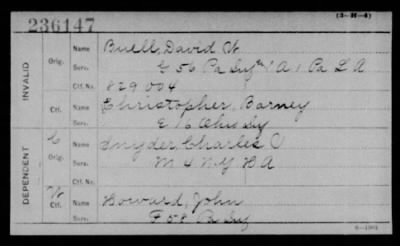 (3-M-4)
236147
INVALID
Orig. Name Buell, David W
Serv. G 56 Pa Inf "A 1 Pa L A
Ctf. No. 829004
Ctf. Name Christopher, Barney
Serv. E 16 Ohio Inf
DEPENDENT
C Orig. Name Snyder, Charles
Serv. M 4 N Y H A
Ctf. No.
W Ctf. Name Howard, John
Serv. F 58 Pa Inf